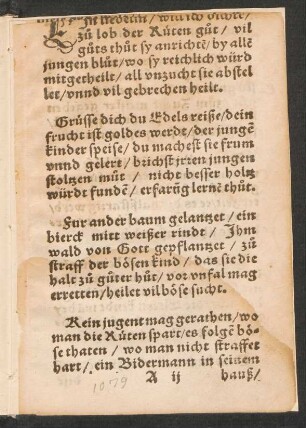 zů lob der Růten gůt/ vil
gůts thůt sy anrichtē/ by allē
jungen blůt/ wo sy reichlich würd
mitgetheilt/ all vnzucht sie abstel
let/ vnnd vil gebrechen heilt.
Grüsse dich du Edels reise/ dein
frucht ist goldes werdt/ der jungē
kinder speise/ du machest sie frum
vnnd gelert/ brichst jrren jungen
stoltzen můt / nicht besser holtz
würdt fundē/ erfarūg lernē thůt.
Fur ander baum gelantzet/ ein
bierck mitt weißer rindt/ Ihm
wald von Gott gepflantzet/ zů
straff der bösen kind/ das sie die
halt zů gůter hůt/ vor vnfal mag
erretten/ heilet vil böse sucht.
Kein jugent mag gerathen/ wo
man die Růten spart/ es folgē bö-
se thaten/ wo man nicht straffet
hart/ ein Bidermann in seinem
1079 A ij hauß/